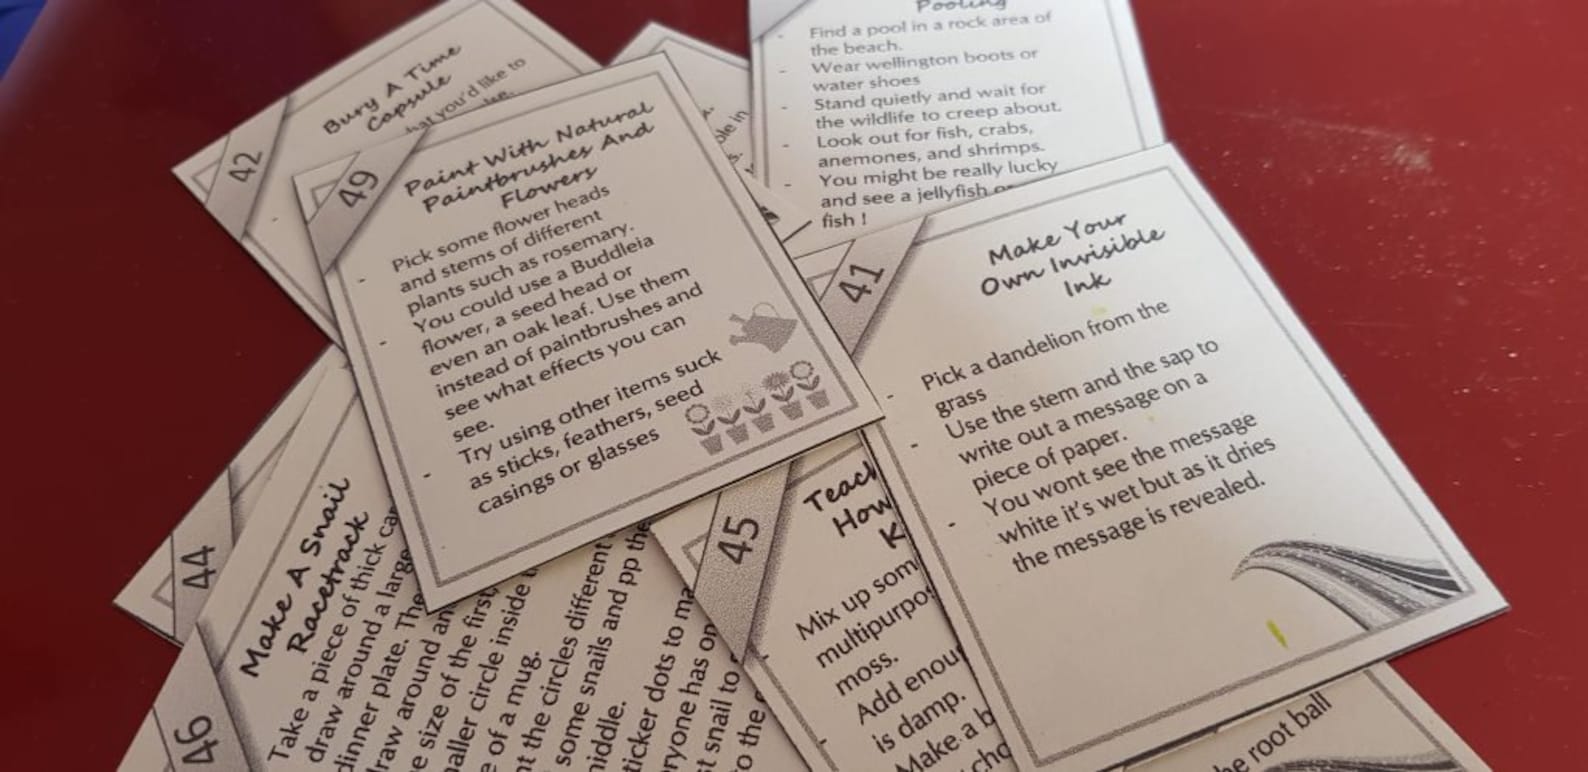 42
Bury A Time
Capsule
you'd like to
49
Paint With Natural
Paintbrushes And
Flowers
- Pick some flower heads
and stems of different
plants such as rosemary.
- You could use a Buddleia
flower, a seed head or
even an oak leaf. Use them
instead of paintbrushes and
see what effects you can
see.
- Try using other items suck
as sticks, feathers, seed
casings or glasses
Pooling
- Find a pool in a rock area of
the beach.
- Wear wellington boots or
water shoes
- Stand quietly and wait for
the wildlife to creep about.
- Look out for fish, crabs,
anemones, and shrimps.
- You might be really lucky
and see a jellyfish
fish !
41
Make Your
Own Invisible
Ink
- Pick a dandelion from the
grass
- Use the stem and the sap to
write out a message on a
piece of paper.
- You wont see the message
white it's wet but as it dries
the message is revealed.
44
46
Make A Snail
Racetrack
Take a piece of thick
draw around a large
dinner plate.
around
size of the first,
circle inside
of a mug.
the circles different
some snails and pp the
middle.
dots to
has
snail to
to the
45
How
Mix up
moss.
Add
is damp.
Make a
root ball